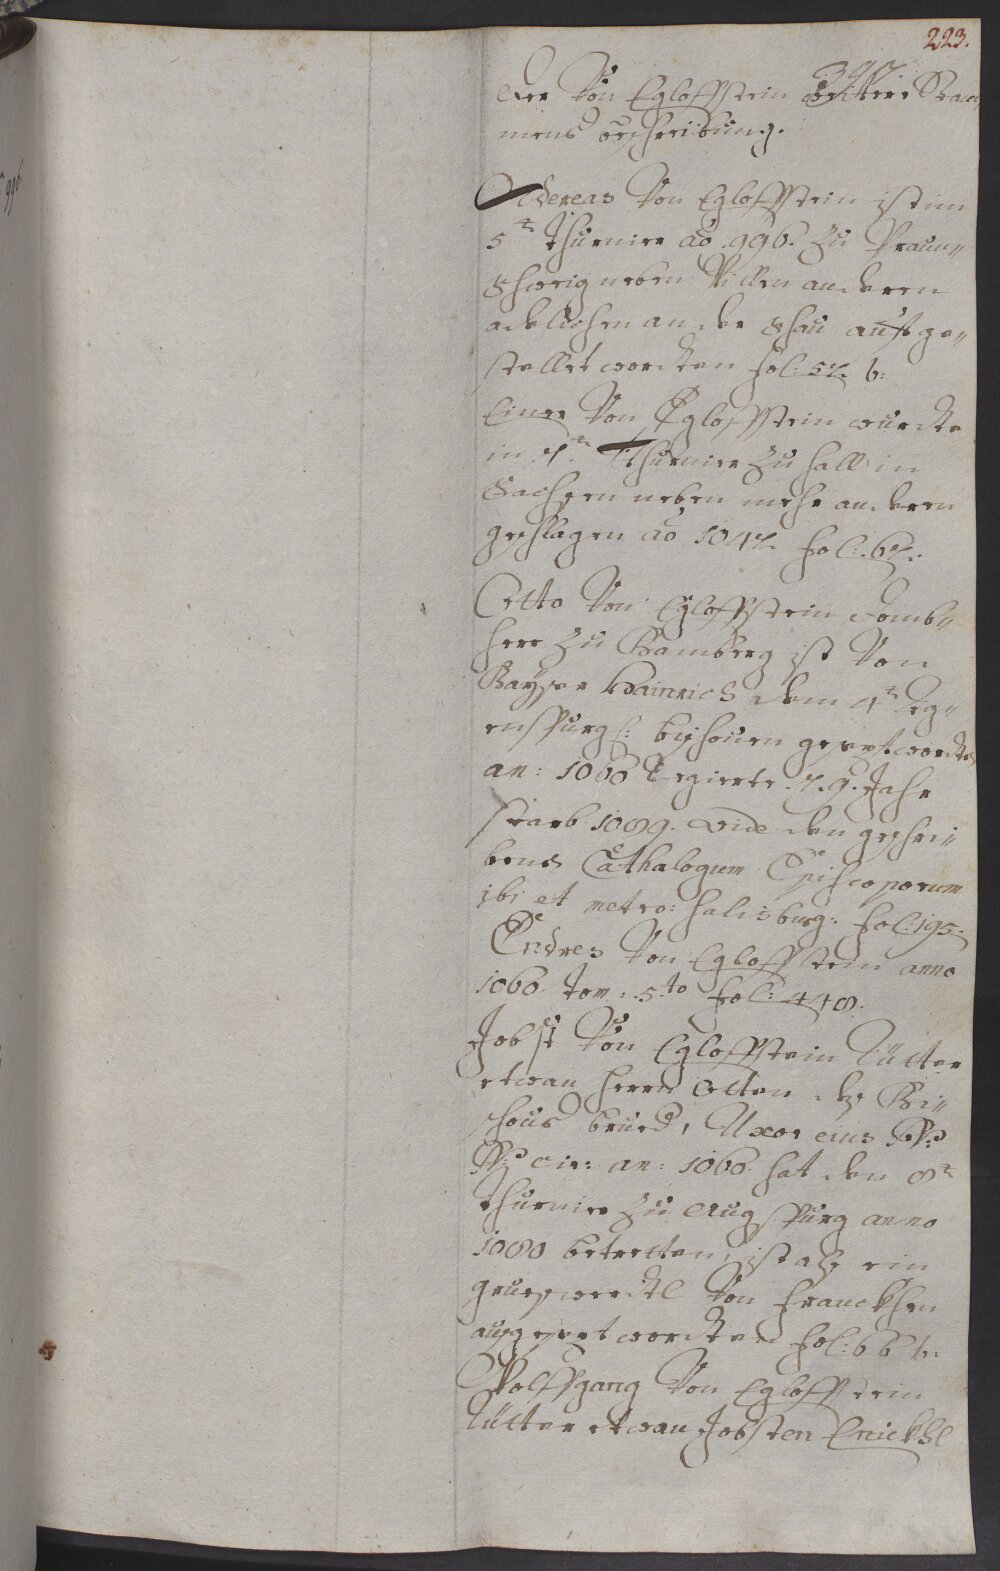 223.
397
Der Von Egloffstein weittere Stam
mens beschreibung.
Andereas Von Egloffstein ist im
5t Thurnier aō. 996. Zu Praun„
schweig neben Villen anderen
adelichen an der schau aufge„
stellet worden fol: 52. b:
Einer Von Egloffstein wurdte
in 7t Thurnier Zu Hall in
Sachsen neben mehr anderen
geschlagen aō. 1042. fol: 62.
Otto Von Egloffstein Domb„
herr Zu Bamberg ist Von
Kayser Hainrich dem 4t Reg„
enspurg: bischouen gesezt wordten
an: 1060 Regierte 29. Jahr
starb 1089. vide den geschri„
bens Cathalogum Episcoporum
ibi et metro: Salisburg: fol: 195.
Endres Von Egloffstein anno
1060. Tom: 5.to fol: 448.
Jobst Von Egloffstein Ritter
etwan Herrn Otten des Bi„
schous brued, Uxor eius
cir: an: 1060. hat den 8t
Thurnier Zu Augspurg anno
1080 betretten, ist als ein
grueswerdtl Von Franckhen
ausgesezt wordten fol: 66 b.
Wolffgang Von Egloffstein
Ritter etwan Jobsten Enickhl